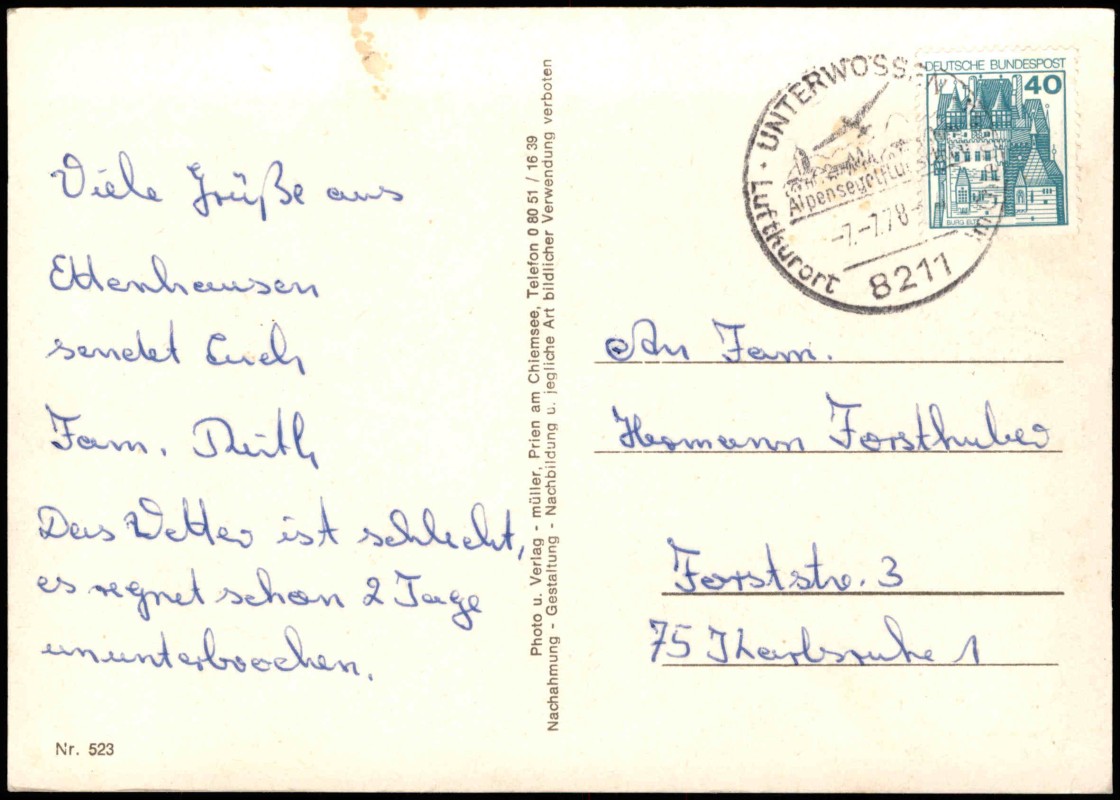 Viele Grüße aus
Ettenhausen
sendet Euch
Fam.
Das Wetter ist schlecht,
es regnet schon 2 Tage
ununterbrochen.
Nr. 523
Photo u. Verlag - müller, Prien am Chiemsee, Telefon 0 80 51 / 16 39
Nachahmung - Gestaltung - Nachbildung u. jegliche Art bildlicher Verwendung verboten
Luftkurort · UNTERWOSS
-7.-7.78
8211
DEUTSCHE BUNDESPOST
40
BURG
An Fam.
Hermann Forsthuber
Forststr. 3
75 Karlsruhe 1